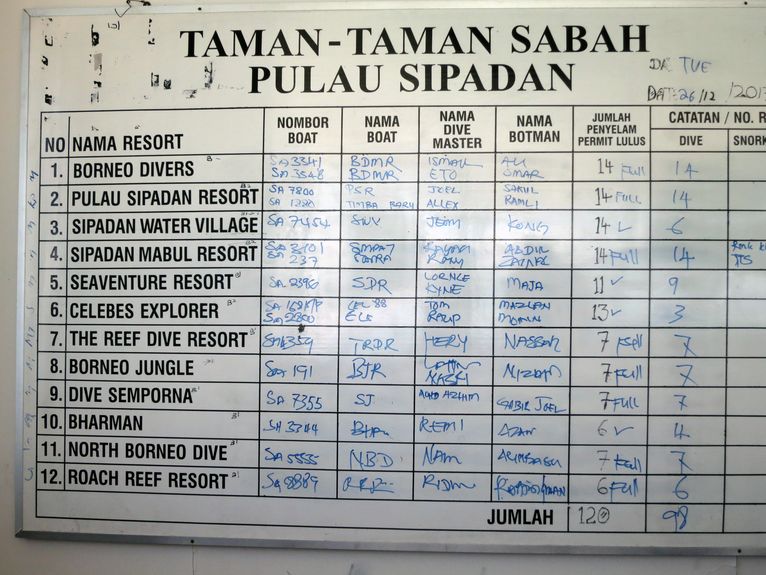 TAMAN-TAMAN SABAH
PULAU SIPADAN
DA TUE
DAT: 26/12 /201
NO NAMA RESORT NOMBOR BOAT NAMA BOAT NAMA DIVE MASTER NAMA BOTMAN JUMLAH PENYELAM PERMIT LULUS CATATAN / NO. R
DIVE SNORK
1. BORNEO DIVERS SA 3341 BDMR ISMAIL ALI 14 Full 14
SA 3548 BDMR ETO OMAR
2. PULAU SIPADAN RESORT SA 7800 PSR JOEL 14 FULL 14
SA 1220 TIMBA BARU ALLEX RAMLI
3. SIPADAN WATER VILLAGE SA 7454 SWV JEMI KONG 14 ✓ 6
4. SIPADAN MABUL RESORT SA 3101 SMART ABDUL 14 Full 14
SA 237 ZAINAL
5. SEAVENTURE RESORT SA 2396 SDR LORNLE MAJA 11 ✓ 9
KYNE
6. CELEBES EXPLORER CEL '88 TOM MAZLAN 13 ✓ 3
SA 2800 ELE
7. THE REEF DIVE RESORT TRDR HERY NASSER 7 Full 7
8. BORNEO JUNGLE SA 191 BJR NIZAM 7 Full 7
9. DIVE SEMPORNA SA 7355 SJ GABIR JOEL 7 Full 7
10. BHARMAN SA 3344 REMI AZAN 6 ✓ 4
11. NORTH BORNEO DIVE SA 5555 NBD NAM 7 Full 7
12. ROACH REEF RESORT SA 8889 RRR RIDM 6 Full 6
JUMLAH 120 98